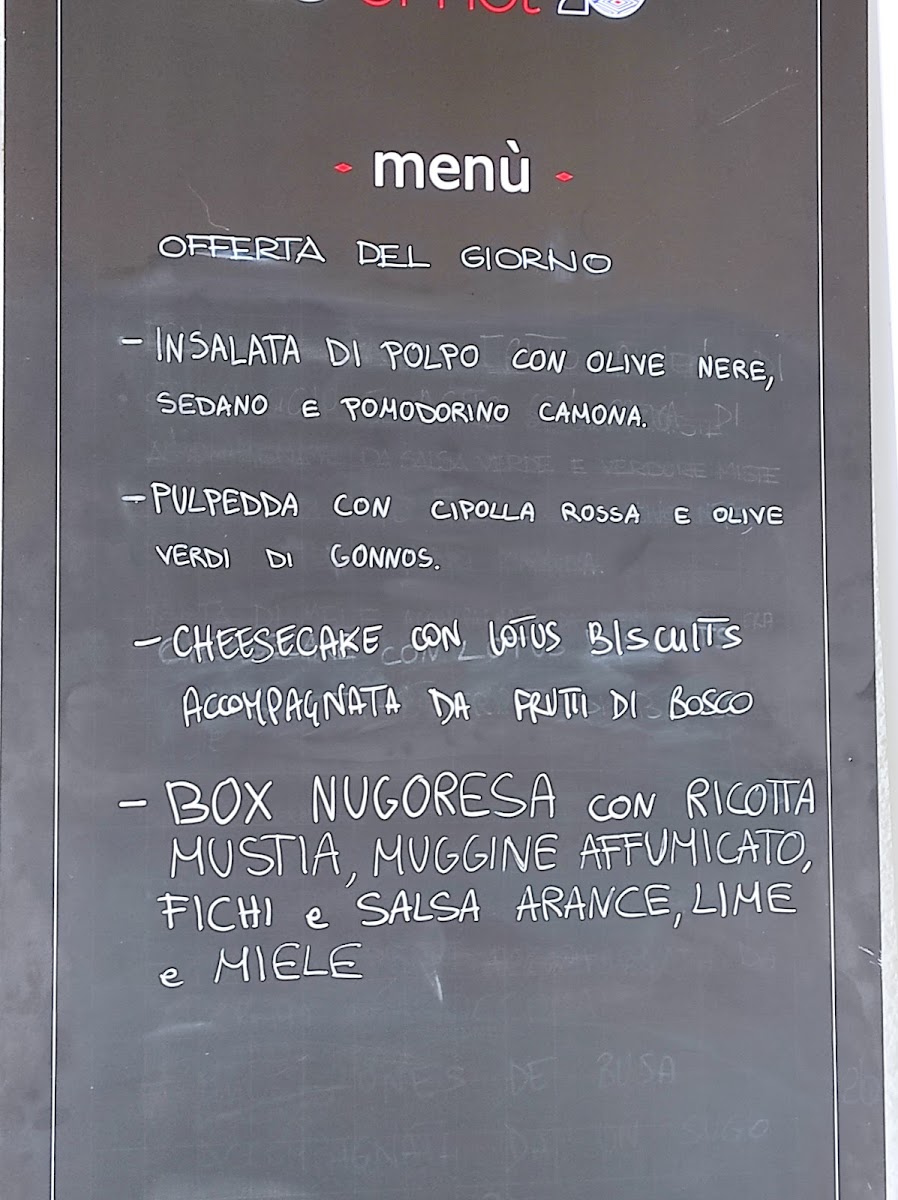 menù
OFFERTA DEL GIORNO
- INSALATA DI POLPO CON OLIVE NERE,
SEDANO E POMODORINO CAMONA.
- PULPEDDA CON CIPOLLA ROSSA E OLIVE
VERDI DI GONNOS.
- CHEESECAKE CON LOTUS BISCUITS
ACCOMPAGNATA DA FRUTTI DI BOSCO
- BOX NUGORESA CON RICOTTA
MUSTIA, MUGGINE AFFUMICATO,
FICHI e SALSA ARANCE, LIME
e MIELE
DE BUSA
SUGO